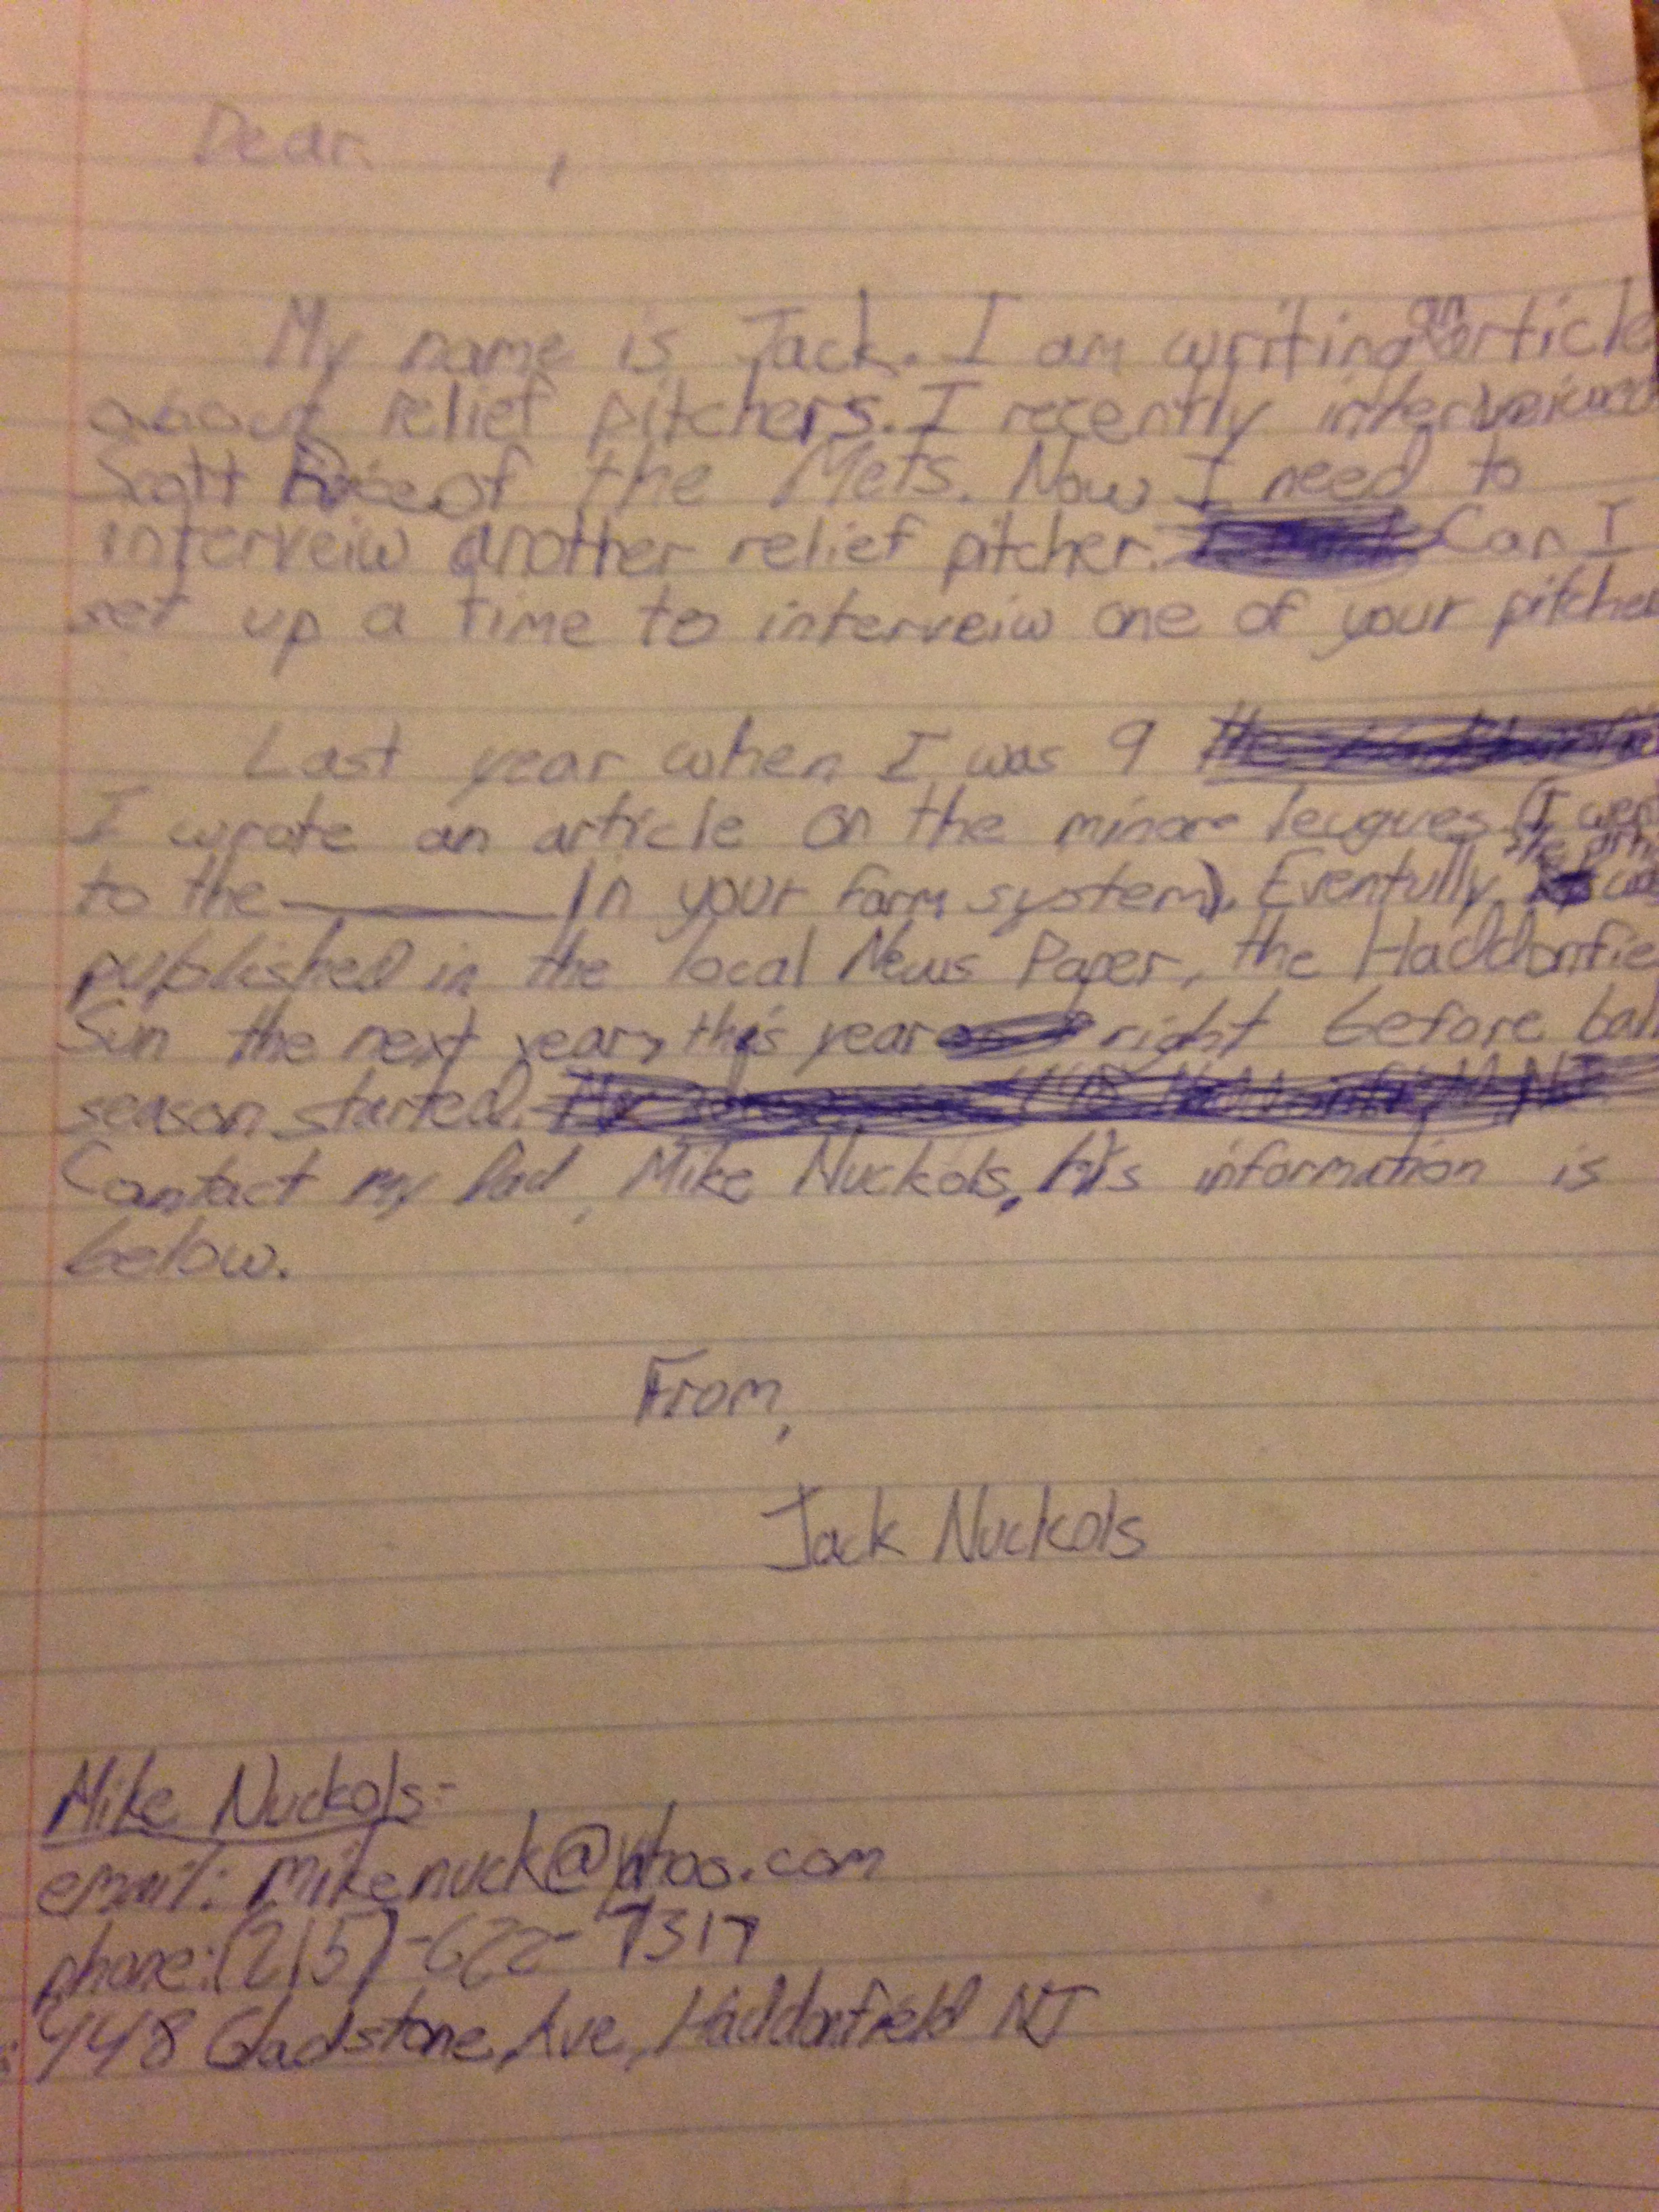 Dear ,
My name is Jack. I am writing an article
about relief pitchers. I recently
Scott Rice of the Mets. Now I need to
interveiw another relief pitcher. Can I
set up a time to interveiw one of your pitche
Last year when I was 9
I wrote an article on the minor leugues (I went
to the ______ in your farm system). Eventully, the arti
published in the local News Paper, the Haddonfie
Sun the next year, this year right before ball
season started.
Contact my Dad, Mike Nuckols. His information is
below.
From,
Jack Nuckols
Mike Nuckols-
email: mikenuck@yahoo.com
phone: (215)-622-7317
448 Gladstone Ave, Haddonfield NJ